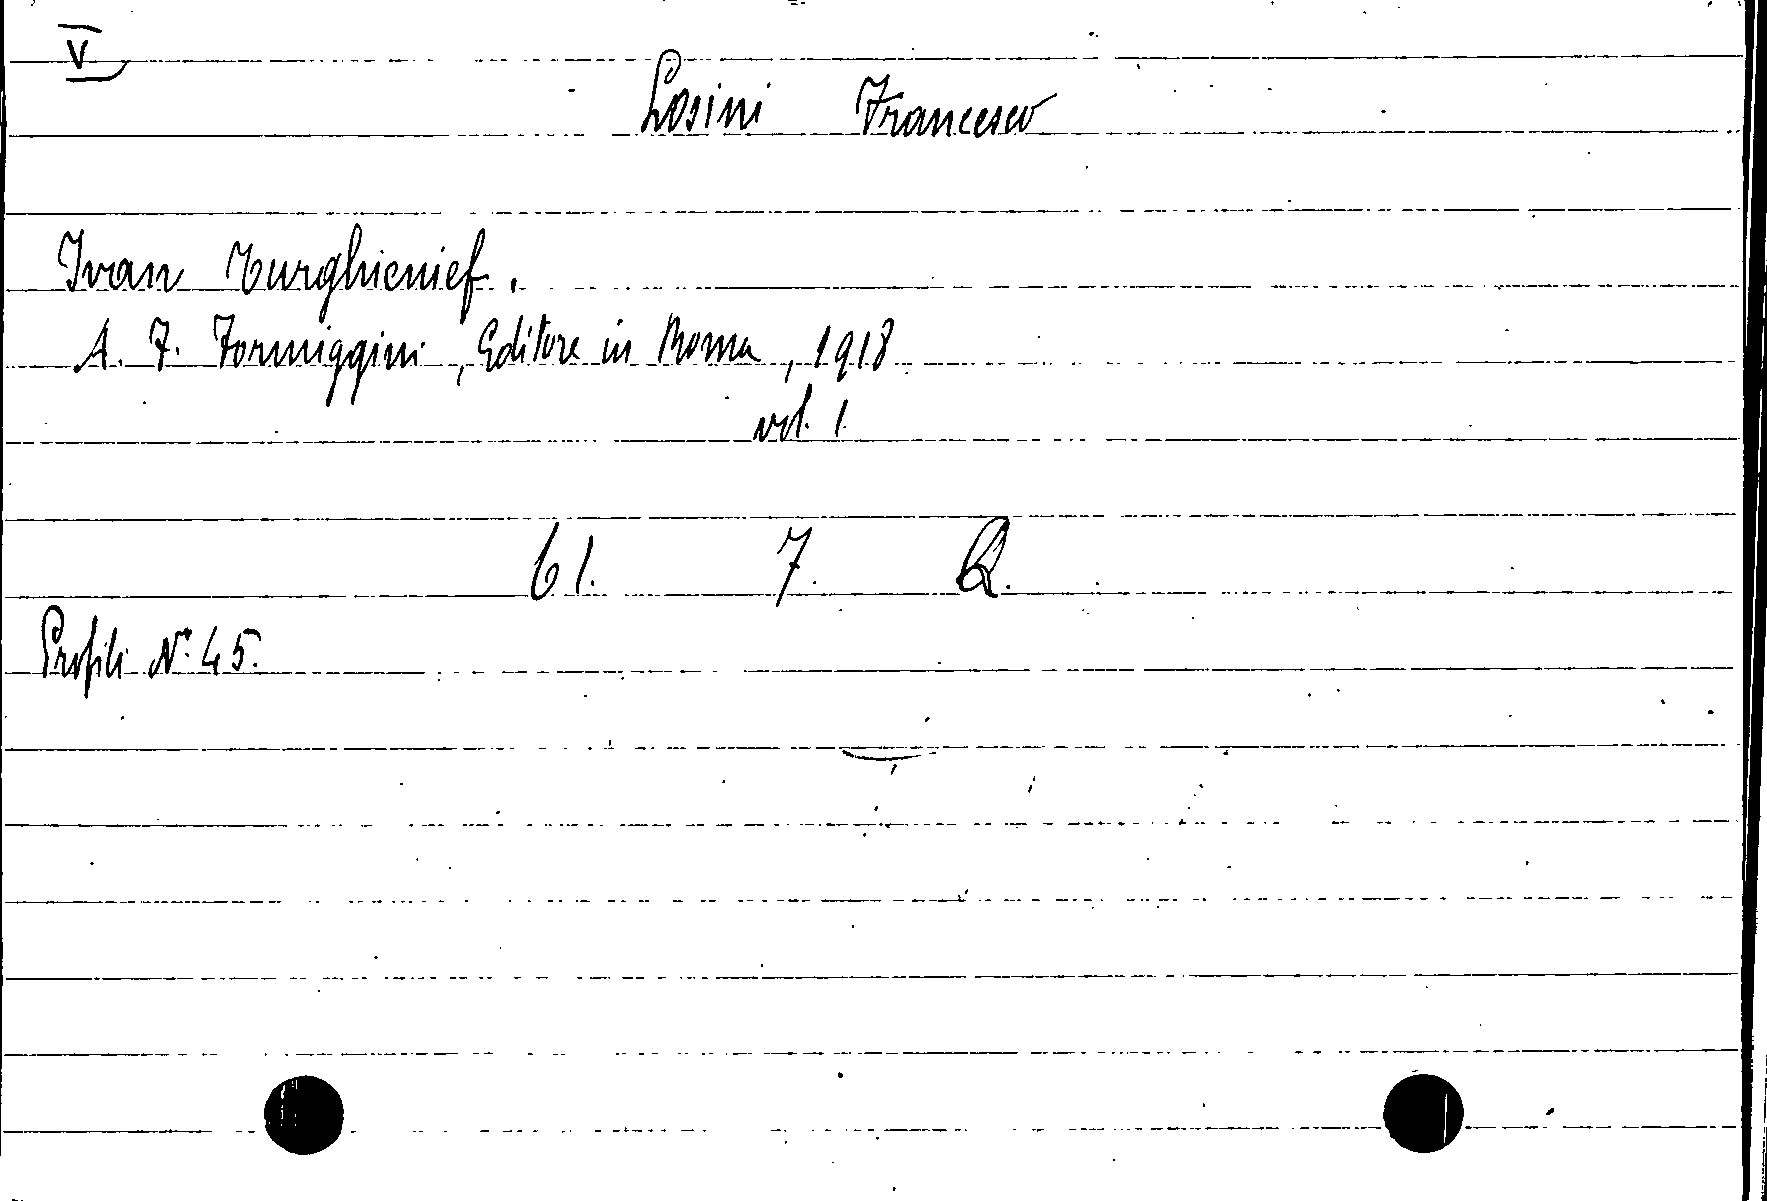 V
Losini Francesco
Ivan Turghienief.
A. F. Formiggini, Editore in Roma, 1918
vol. 1.
61. 7. Q.
Profili N. 45.